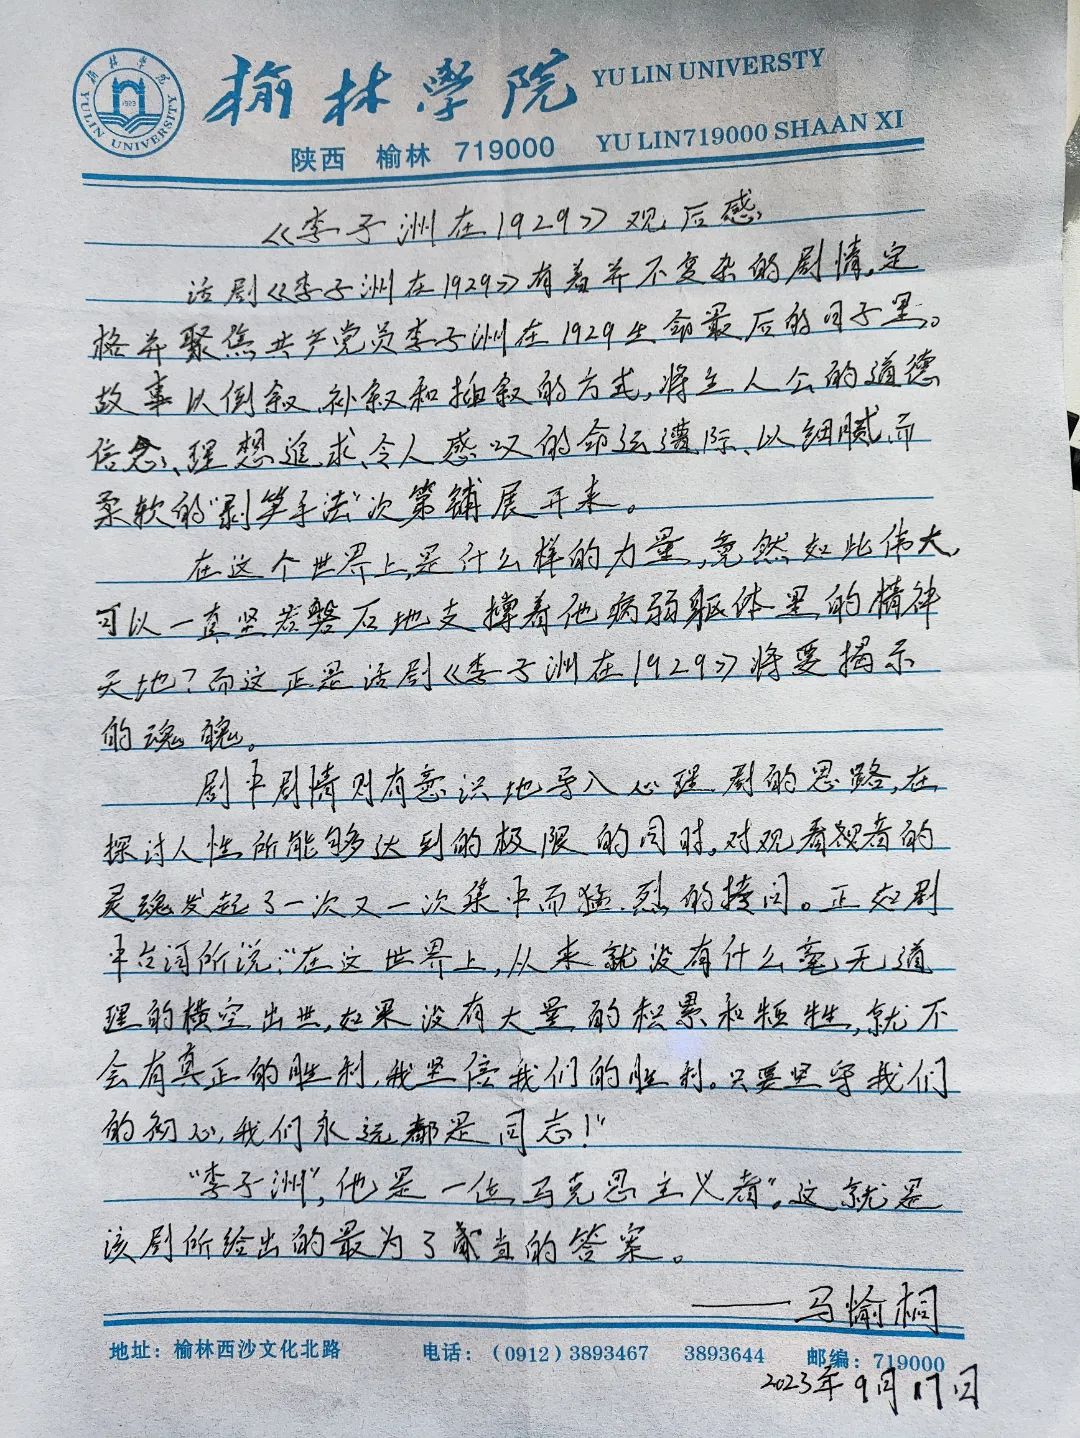 榆林学院
YULIN UNIVERSITY
1923
榆林学院 YU LIN UNIVERSTY
陕西 榆林 719000 YU LIN719000 SHAAN XI
《李子洲在1929》观后感
话剧《李子洲在1929》有着并不复杂的剧情,定
格并聚焦共产党员李子洲在1929生命最后的日子里。
故事以倒叙、补叙和插叙的方式,将主人公的道德
信念、理想追求、令人感叹的命运遭际、以细腻而
柔软的“剥笋手法”次第铺展开来。
在这个世界上,是什么样的力量,竟然如此伟大,
可以一直坚若磐石地支撑着他病弱躯体里的精神
天地?而这正是话剧《李子洲在1929》将要揭示
的魂魄。
剧中剧情则有意识地导入心理剧的思路,在
探讨人性所能够达到的极限的同时,对观看观者的
灵魂发起了一次又一次集中而猛烈的拷问。正如剧
中台词所说:“在这世界上,从来就没有什么毫无道
理的横空出世,如果没有大量的积累和牺牲,就不
会有真正的胜利,我坚信我们的胜利。只要坚守我们
的初心,我们永远都是同志!”
“李子洲”,他是一位马克思主义者”。这就是
该剧所给出的最为了当的答案。
——马愉桐
地址：榆林西沙文化北路 电话：(0912)3893467 3893644 邮编：719000
2023年9月17日